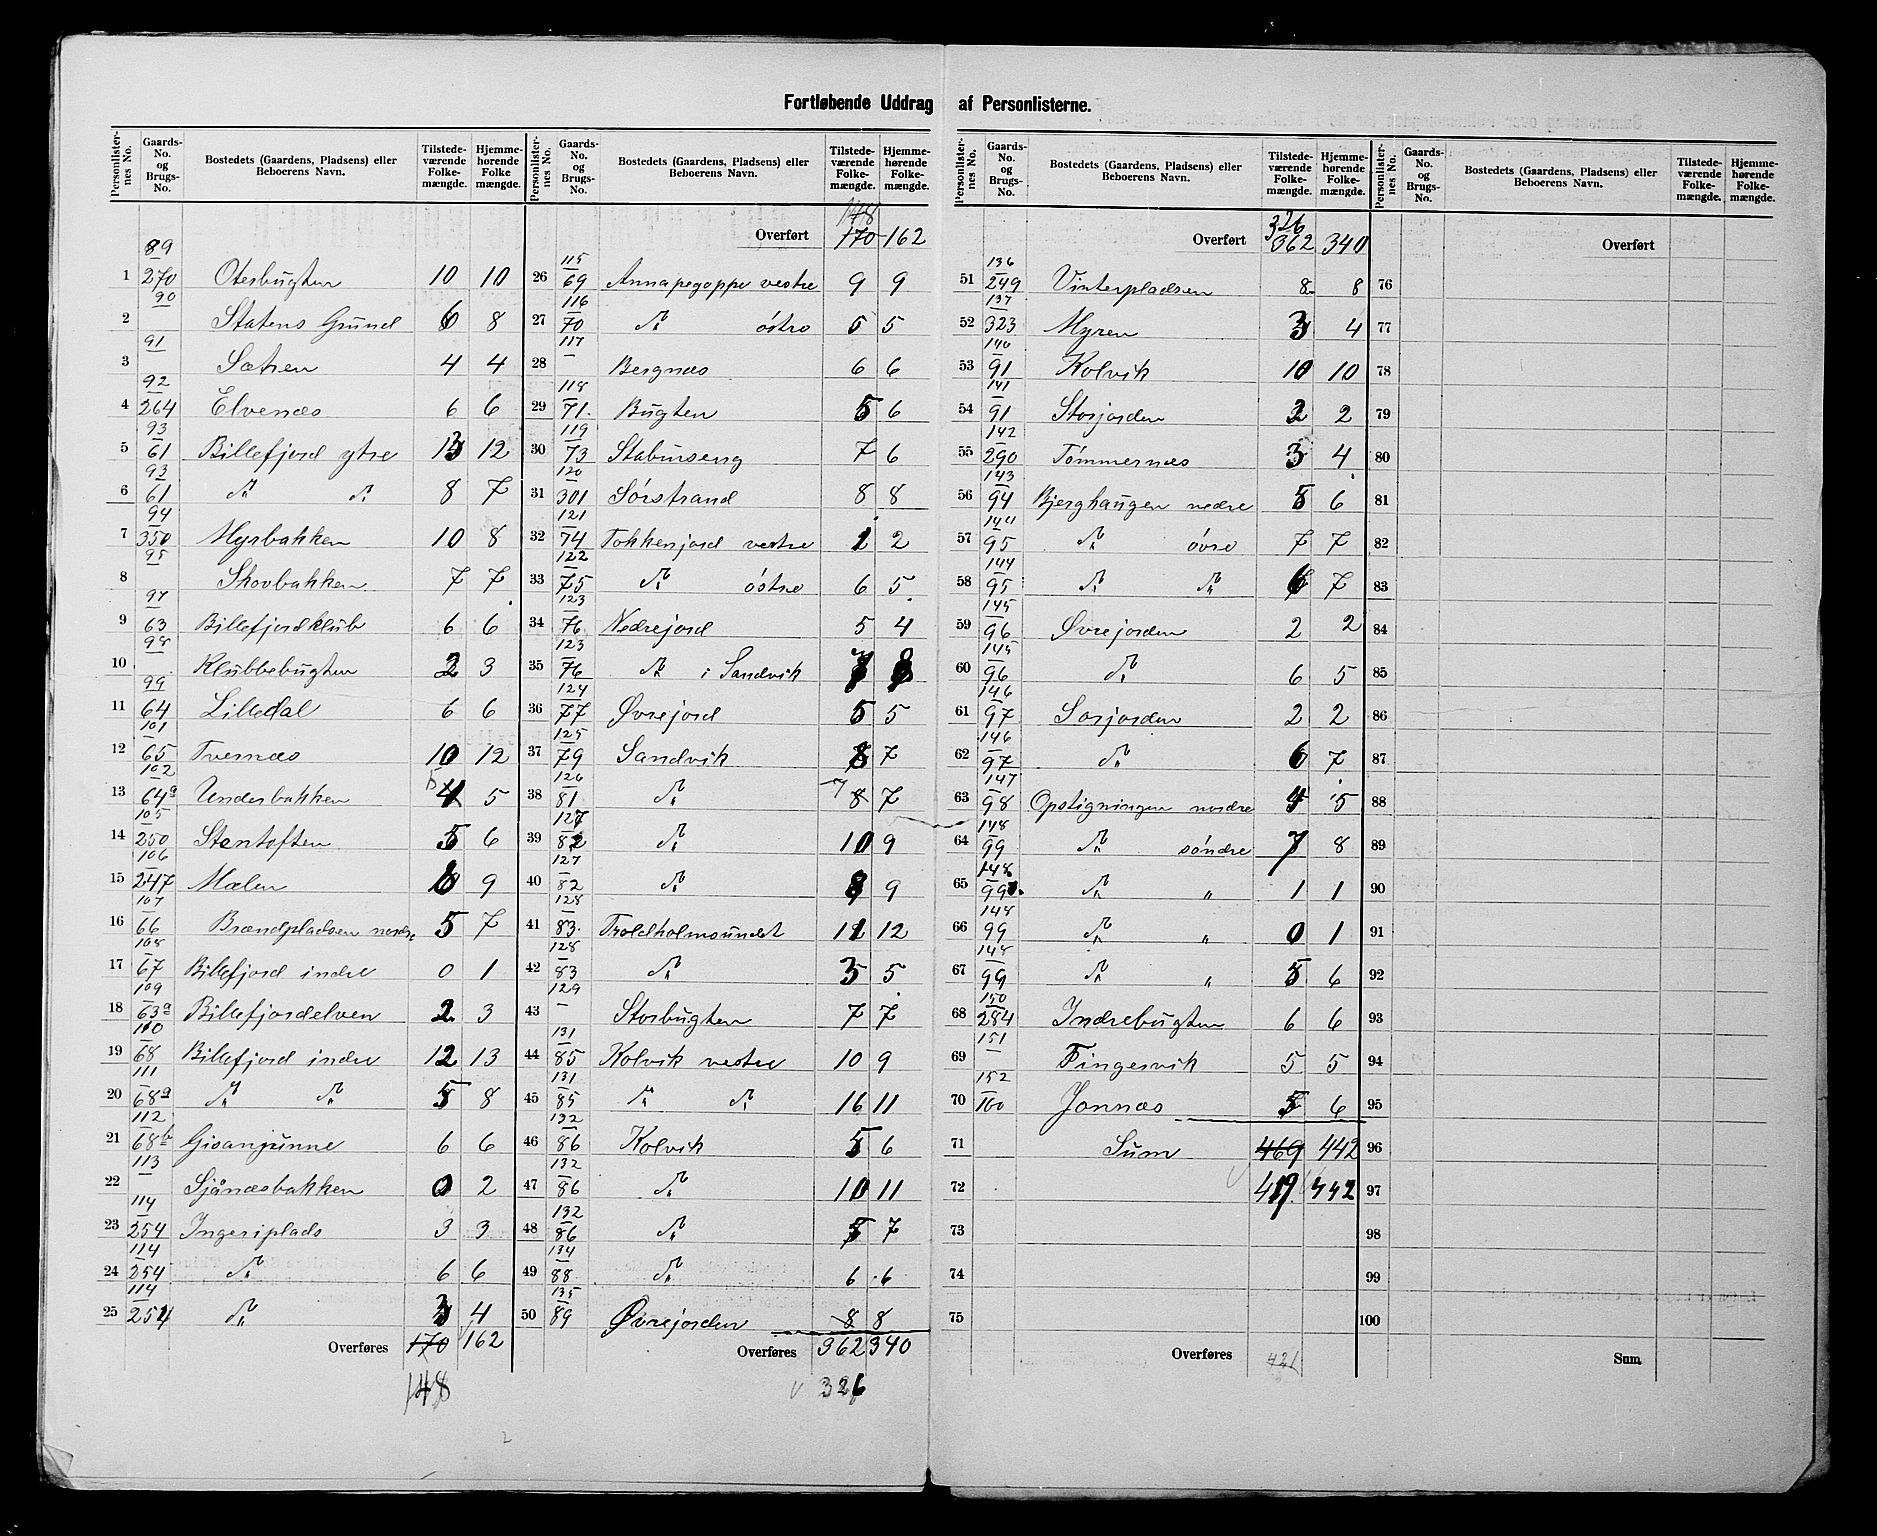 Fortløbende Uddrag af Personlisterne.
Personlisternes No. Gaards-No. og Brugs-No. Bostedets (Gaardens, Pladsens) eller Beboerens Navn. Tilstedeværende Folkemængde. Hjemmehørende Folkemængde.
1 89/270 Otesbugten 10 10
2 90 Statens Grund 6 8
3 91 Sætren 4 4
4 92/264 Elvenæs 6 6
5 93/61 Billefjord ytre 13 12
6 93/61 do do 8 7
7 94/350 Myrbakken 10 8
8 95 Skovbakken 7 7
9 97/63 Billefjordklub 6 6
10 98 Klubbebugten 2 3
11 99/64 Lilledal 6 6
12 101/65 Tvernæs 10 12
13 102/64a Underbakken 5
14 105/250 Stentoften 5 6
15 106/247 Mælen 8 9
16 107/66 Brændpladsen nordre 5 7
17 108/67 Billefjord indre 0 1
18 109/63a Billefjordelven 2 3
19 110/68 Billefjord indre 12 13
20 111/68a do do 5 8
21 112/68b Gisanjunne 6 6
22 113 Sjånæsbakken 0 2
23 114/254 Ingeriplads 3 3
24 114/254 do 6 6
25 114/254 do 3 4
Overføres 170 162
148
148
Overført 170 162
26 115/69 Annapegoppe vestre 9 9
27 116/70 do östre 5 5
28 117/– Bergnæs 6 6
29 118/71 Bugten 5 6
30 119/73 Staburseng 7 6
31 120/301 Sörstrand 8 8
32 121/74 Tokkenjord vestre 1 2
33 122/75 do östre 6 5
34 123/76 Nedrejord 5 4
35 123/76 do i Sandvik 7 8
36 124/77 Øvrejord 5 5
37 125/79 Sandvik 8 7
38 126/81 do 7 8 7
39 127/82 do 10 9
40 127/82 do 8 9
41 128/83 Troldholmsundet 11 12
42 128/83 do 3 5
43 129/– Storbugten 7 7
44 131/85 Kolvik vestre 10 9
45 131/85 do do 16 11
46 132/86 Kolvik 5 6
47 132/86 do 10 11
48 132/86 do 5 7
49 134/88 do 6 6
50 135/89 Øvrejorden 8 8
Overføres 362 340
326
326
Overført 362 340
51 136/249 Vinterpladsen 8 8
52 137/323 Myren 3 4
53 140/91 Kolvik 10 10
54 141/91 Storjorden 2 2
55 142/290 Tömmernæs 3 4
56 143/94 Bjerghaugen nedre 5 6
57 144/95 do övre 7 7
58 144/95 do do 6 7
59 145/96 Øvrejorden 2 2
60 145/96 do 6 5
61 146/97 Sorjorden 2 2
62 146/97 do 6 7
63 147/98 Opstigningen nordre 4 5
64 148/99 do söndre 7 8
65 148/99 do " 1 1
66 148/99 do " 0 1
67 148/99 do " 5 6
68 150/284 Indrebugten 6 6
69 151/– Fingervik 5 5
70 152/100 Jonnæs 5 6
71 Sum 469 442
72 419 442
73
74
75
Overføres 421
Overført
76
77
78
79
80
81
82
83
84
85
86
87
88
89
90
91
92
93
94
95
96
97
98
99
100
Sum